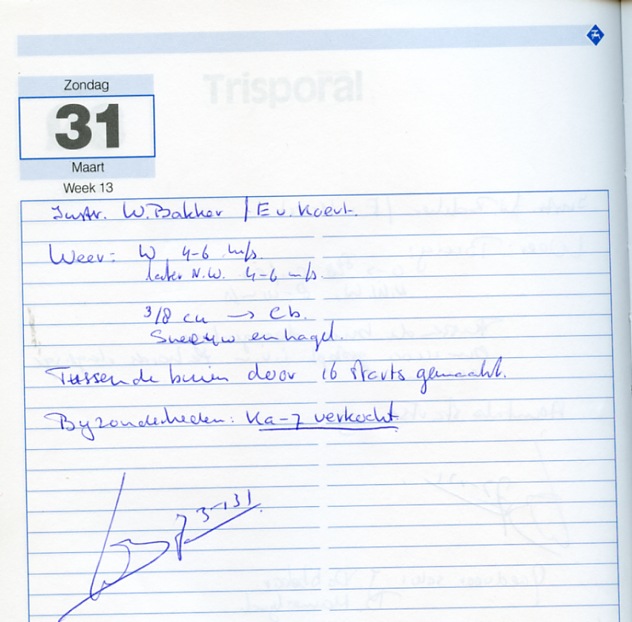 Trisporal
Zondag
31
Maart
Week 13
Instr. W. Bakker / E v. Koert.
Weer: W 4-6 m/s.
later N.W. 4-6 m/s.
3/8 cu → cb.
Sneeuw en hagel.
Tussen de buien door 16 starts gemaakt.
Byzonderheden: Ka-7 verkocht